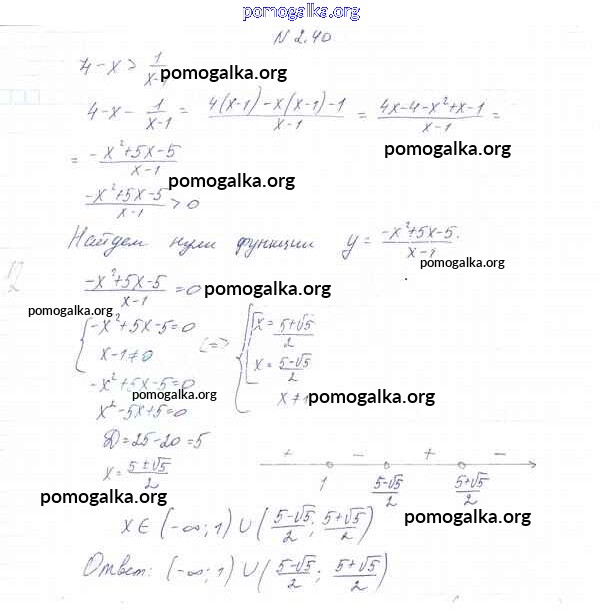 pomogalka.org
N 2.40
4-x > 1/(x-1) pomogalka.org
4-x- 1/(x-1) = (4(x-1)-x(x-1)-1)/(x-1) = (4x-4-x²+x-1)/(x-1) =
pomogalka.org
= (-x²+5x-5)/(x-1)
pomogalka.org
(-x²+5x-5)/(x-1) > 0
Найдем нули функции y = (-x²+5x-5)/(x-1).
pomogalka.org
(-x²+5x-5)/(x-1) = 0 pomogalka.org
pomogalka.org
{ -x²+5x-5=0 <=> { [ x = (5+√5)/2
x-1≠0 x = (5-√5)/2
-x²+5x-5=0 x≠1
pomogalka.org pomogalka.org
x²-5x+5=0
D=25-20=5
x = (5±√5)/2
+ - + -
1 (5-√5)/2 (5+√5)/2
pomogalka.org
x∈(-∞;1)∪((5-√5)/2; (5+√5)/2)
pomogalka.org
Ответ: (-∞;1)∪((5-√5)/2; (5+√5)/2)